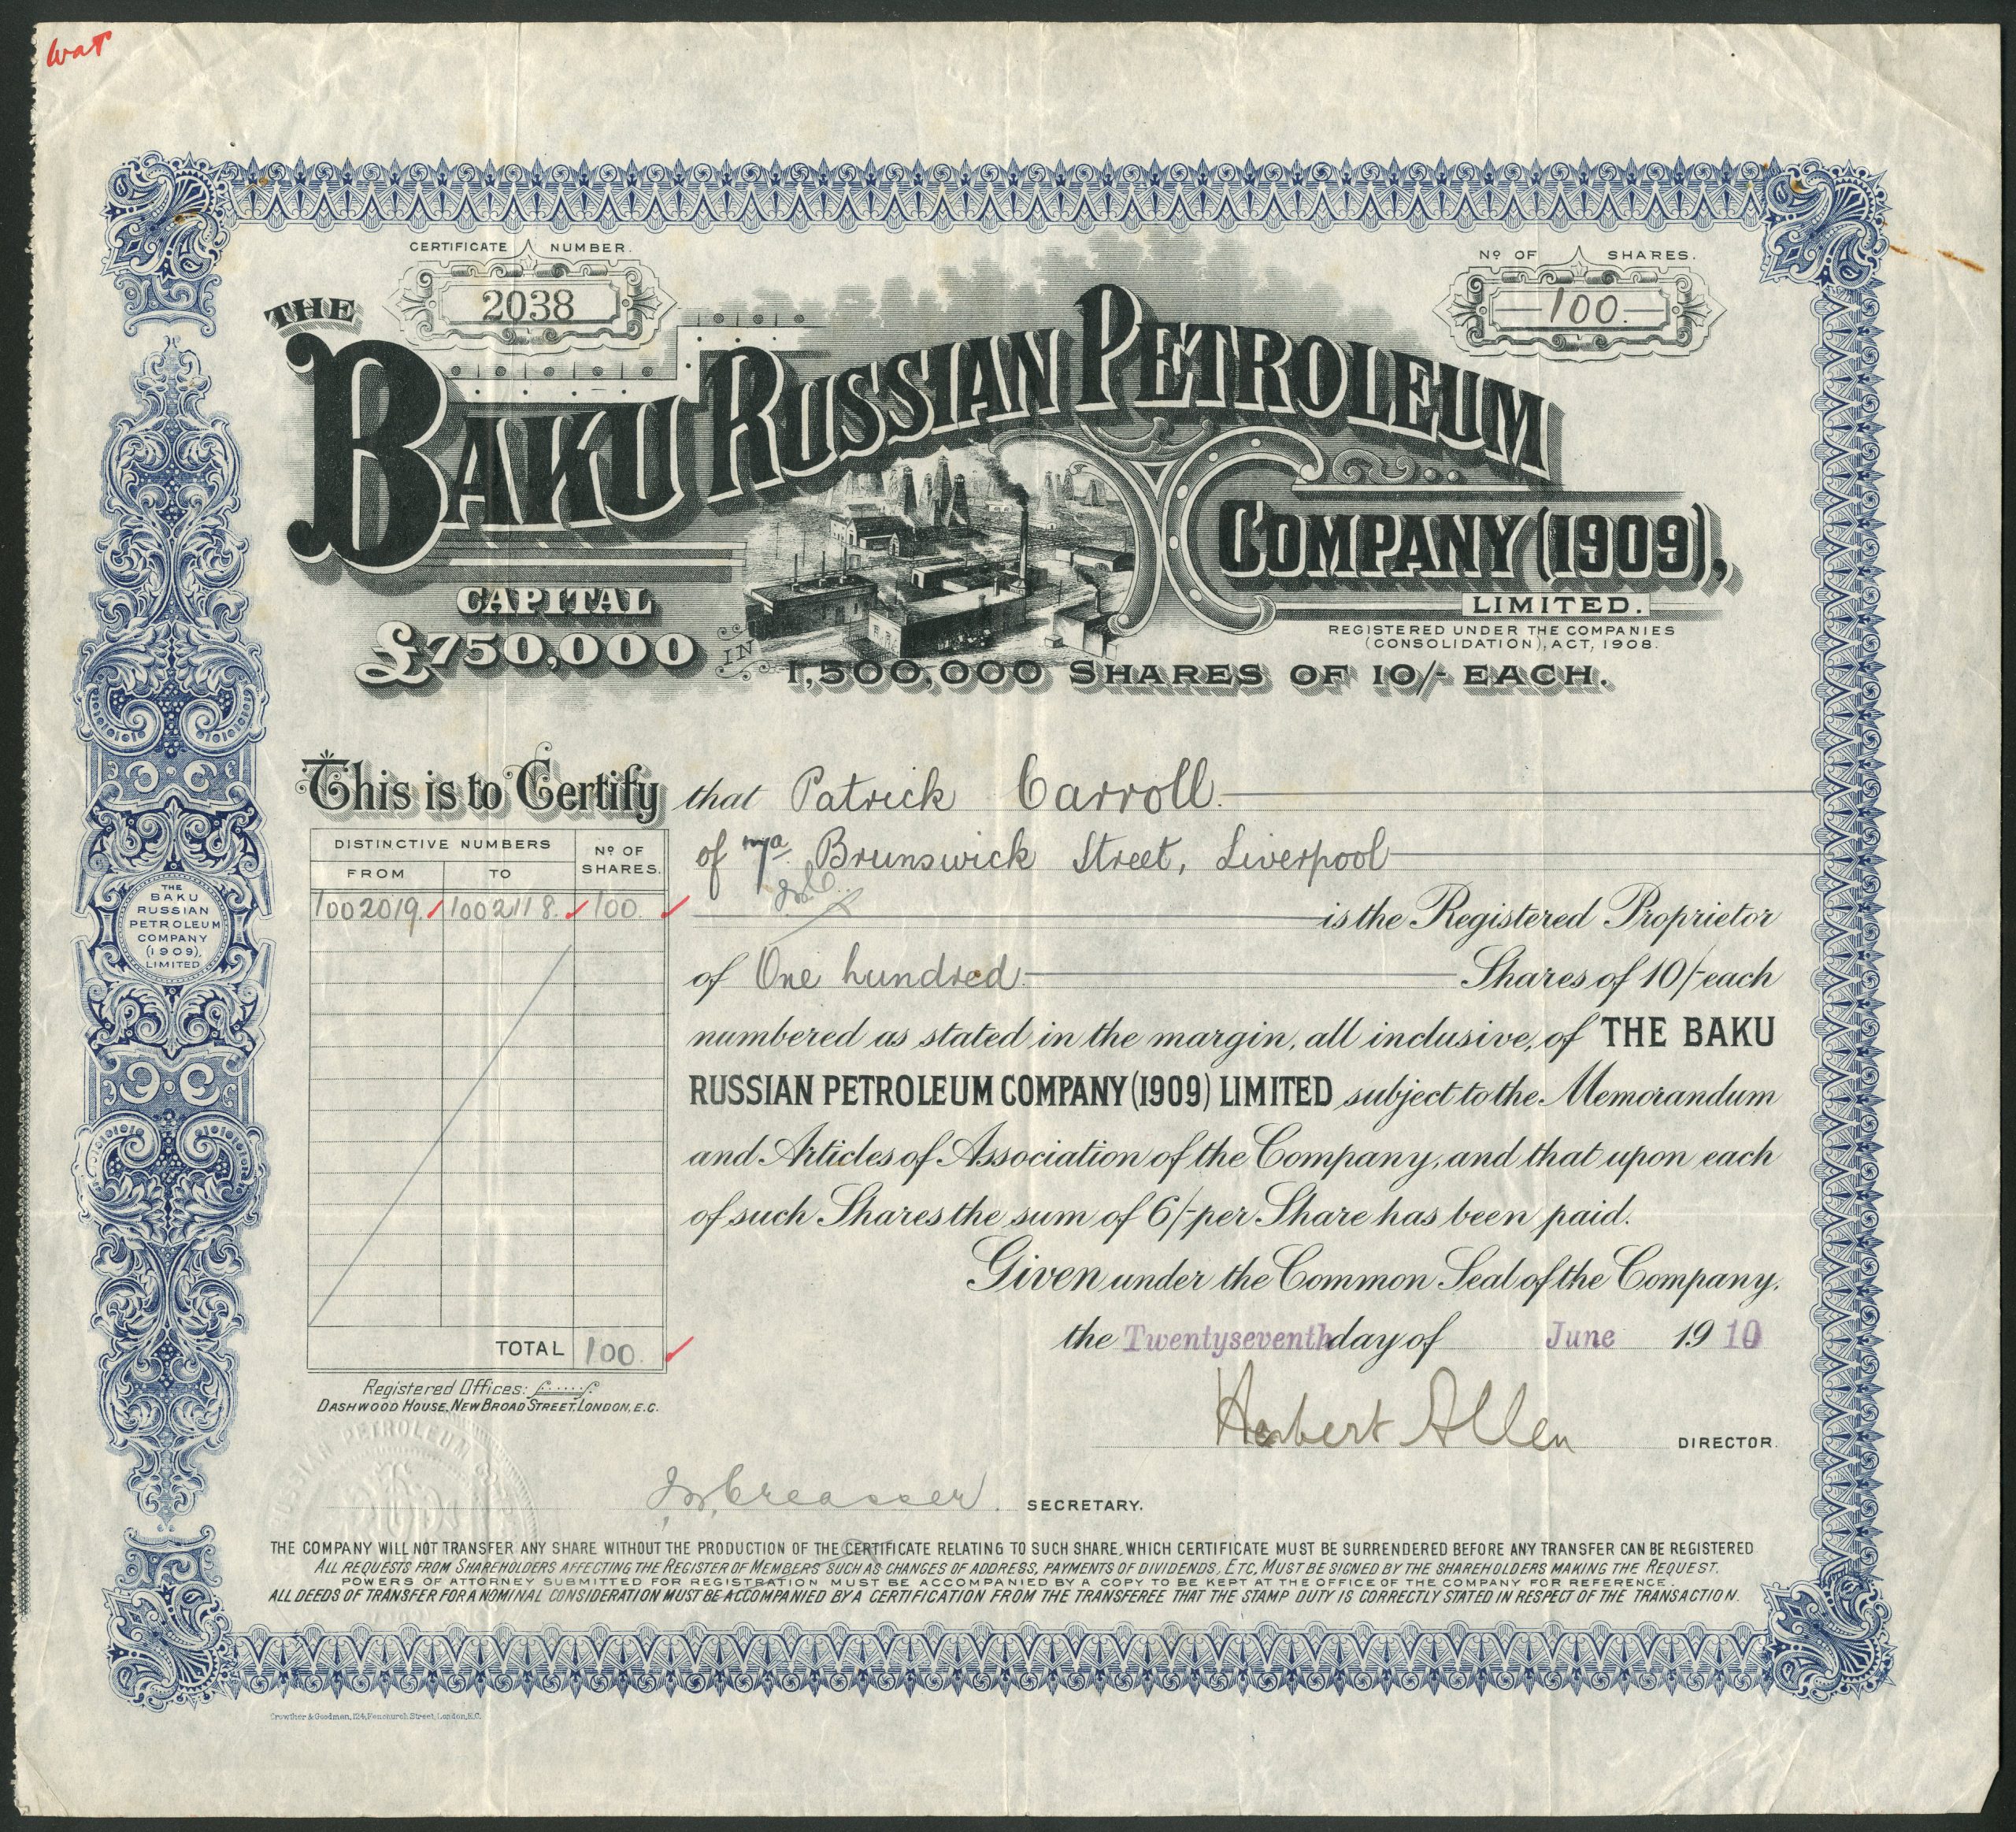 wat
CERTIFICATE NUMBER.
2038
Nº OF SHARES.
100.
THE
BAKU RUSSIAN PETROLEUM
COMPANY (1909),
LIMITED.
REGISTERED UNDER THE COMPANIES
(CONSOLIDATION), ACT, 1908.
CAPITAL
£750,000 IN 1,500,000 SHARES OF 10/- EACH.
This is to Certify that Patrick Carroll.
of 7a Brunswick Street, Liverpool
is the Registered Proprietor
of One hundred Shares of 10/- each
numbered as stated in the margin, all inclusive, of THE BAKU
RUSSIAN PETROLEUM COMPANY (1909) LIMITED subject to the Memorandum
and Articles of Association of the Company, and that upon each
of such Shares the sum of 6/- per Share has been paid.
Given under the Common Seal of the Company,
the Twentyseventh day of June 1910
Herbert Allen DIRECTOR.
SECRETARY.
DISTINCTIVE NUMBERS Nº OF SHARES.
FROM TO
1002019. 1002118. 100.
TOTAL 100.
Registered Offices:
DASHWOOD HOUSE, NEW BROAD STREET, LONDON, E.C.
THE
BAKU
RUSSIAN
PETROLEUM
COMPANY
(1909),
LIMITED
THE COMPANY WILL NOT TRANSFER ANY SHARE WITHOUT THE PRODUCTION OF THE CERTIFICATE RELATING TO SUCH SHARE, WHICH CERTIFICATE MUST BE SURRENDERED BEFORE ANY TRANSFER CAN BE REGISTERED
ALL REQUESTS FROM SHAREHOLDERS AFFECTING THE REGISTER OF MEMBERS SUCH AS CHANGES OF ADDRESS, PAYMENTS OF DIVIDENDS, ETC, MUST BE SIGNED BY THE SHAREHOLDERS MAKING THE REQUEST.
POWERS OF ATTORNEY SUBMITTED FOR REGISTRATION MUST BE ACCOMPANIED BY A COPY TO BE KEPT AT THE OFFICE OF THE COMPANY FOR REFERENCE.
ALL DEEDS OF TRANSFER FOR A NOMINAL CONSIDERATION MUST BE ACCOMPANIED BY A CERTIFICATION FROM THE TRANSFEREE THAT THE STAMP DUTY IS CORRECTLY STATED IN RESPECT OF THE TRANSACTION.
Crowther & Goodman, 124, Fenchurch Street, London, E.C.